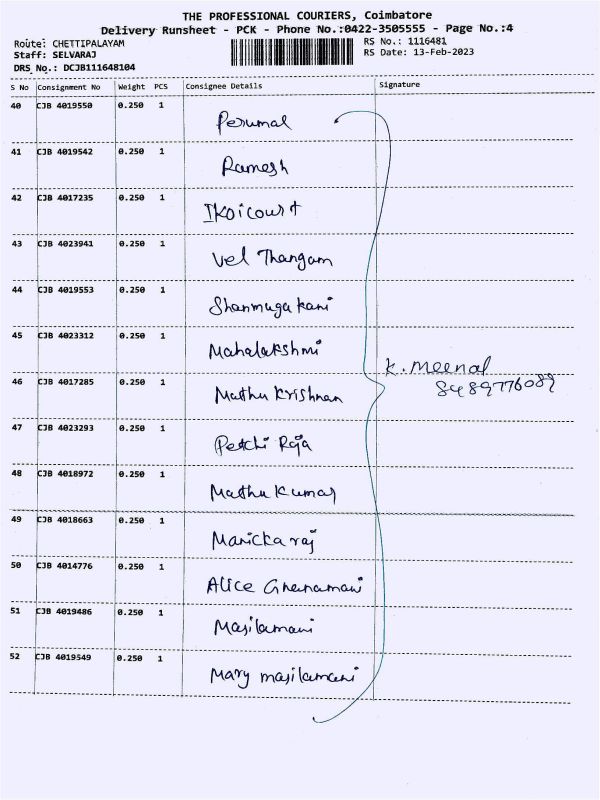 THE PROFESSIONAL COURIERS, Coimbatore
Delivery Runsheet - PCK - Phone No.:0422-3505555 - Page No.:4
Route: CHETTIPALAYAM RS No.: 1116481
Staff: SELVARAJ RS Date: 13-Feb-2023
DRS No.: DCJB111648104
S No Consignment No Weight PCS Consignee Details Signature
40 CJB 4019550 0.250 1 Perumal
41 CJB 4019542 0.250 1 Ramesh
42 CJB 4017235 0.250 1 Ikoicourt
43 CJB 4023941 0.250 1 Vel Thangam
44 CJB 4019553 0.250 1 Shanmuga kani
45 CJB 4023312 0.250 1 Mahalakshmi
K. Meenal
46 CJB 4017285 0.250 1 Mathu Krishnan 8489776089
47 CJB 4023293 0.250 1 Petchi Raja
48 CJB 4018972 0.250 1 Mathu Kumar
49 CJB 4018663 0.250 1 Manicka raj
50 CJB 4014776 0.250 1 Alice Gnanamani
51 CJB 4019486 0.250 1 Masilamani
52 CJB 4019549 0.250 1 Mary masilamani